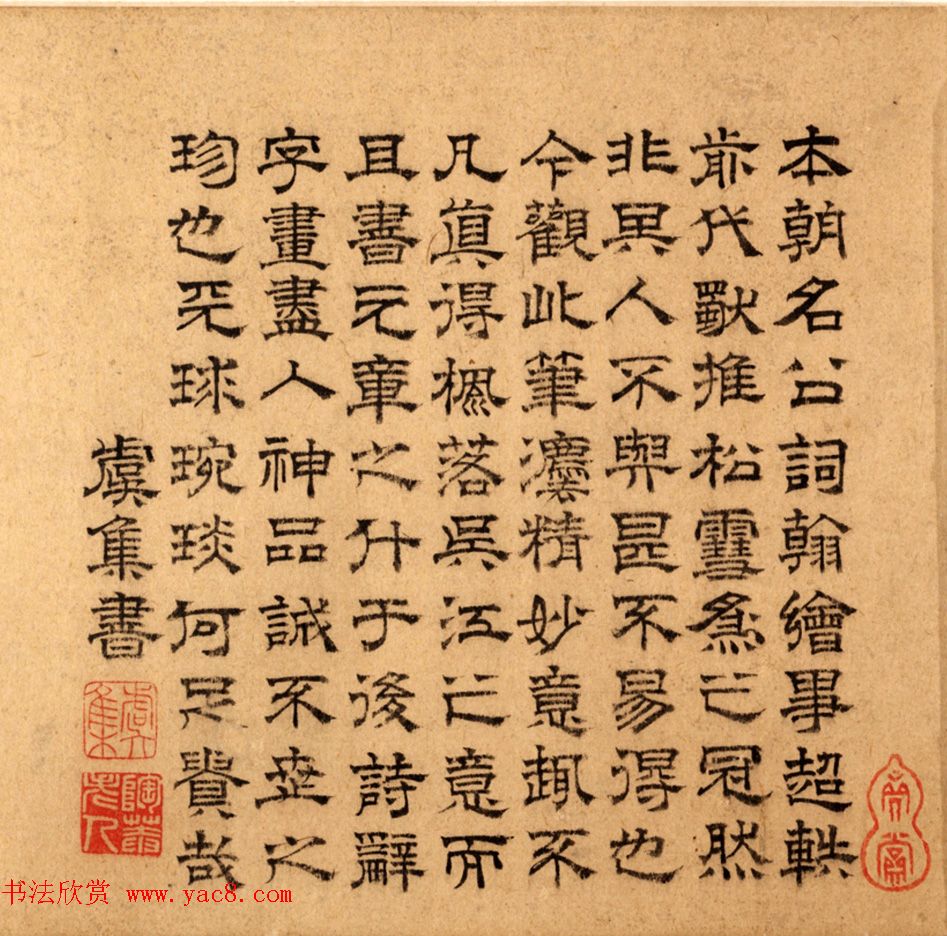 本朝名公詞翰繪事超軼
前代獨推松雪為之冠然
非其人不與甚不易得也
今觀此筆灋精妙意趣不
凡眞得楓落吳江之意而
且書元章之什于後詩辭
字畫盡人神品誠不世之
珍也天球琬琰何足貴哉
虞集書
虞集
书法欣赏 www.yac8.com